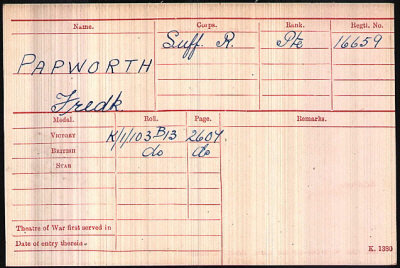 Name. Corps. Rank. Regtl. No.
PAPWORTH Suff. R. Pte 16659
Fredk
Medal. Roll. Page. Remarks.
VICTORY K/1/103 B13 2607.
BRITISH do do
STAR
Theatre of War first served in
Date of entry therein.
K. 1380